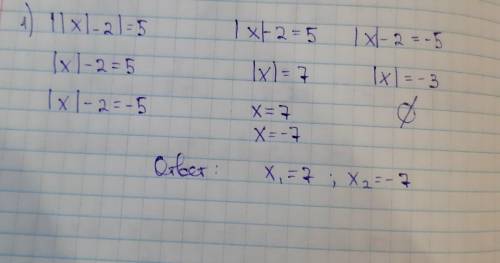 1) ||x|-2|=5
|x|-2=5
|x|-2=-5
|x|-2=5
|x|=7
x=7
x=-7
|x|-2=-5
|x|=-3
∅
Ответ: x₁=7 ; x₂=-7